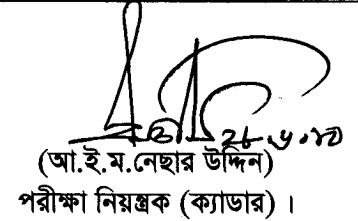 (আ.ই.ম.নেছার উদ্দিন)
পরীক্ষা নিয়ন্ত্রক (ক্যাডার) ।